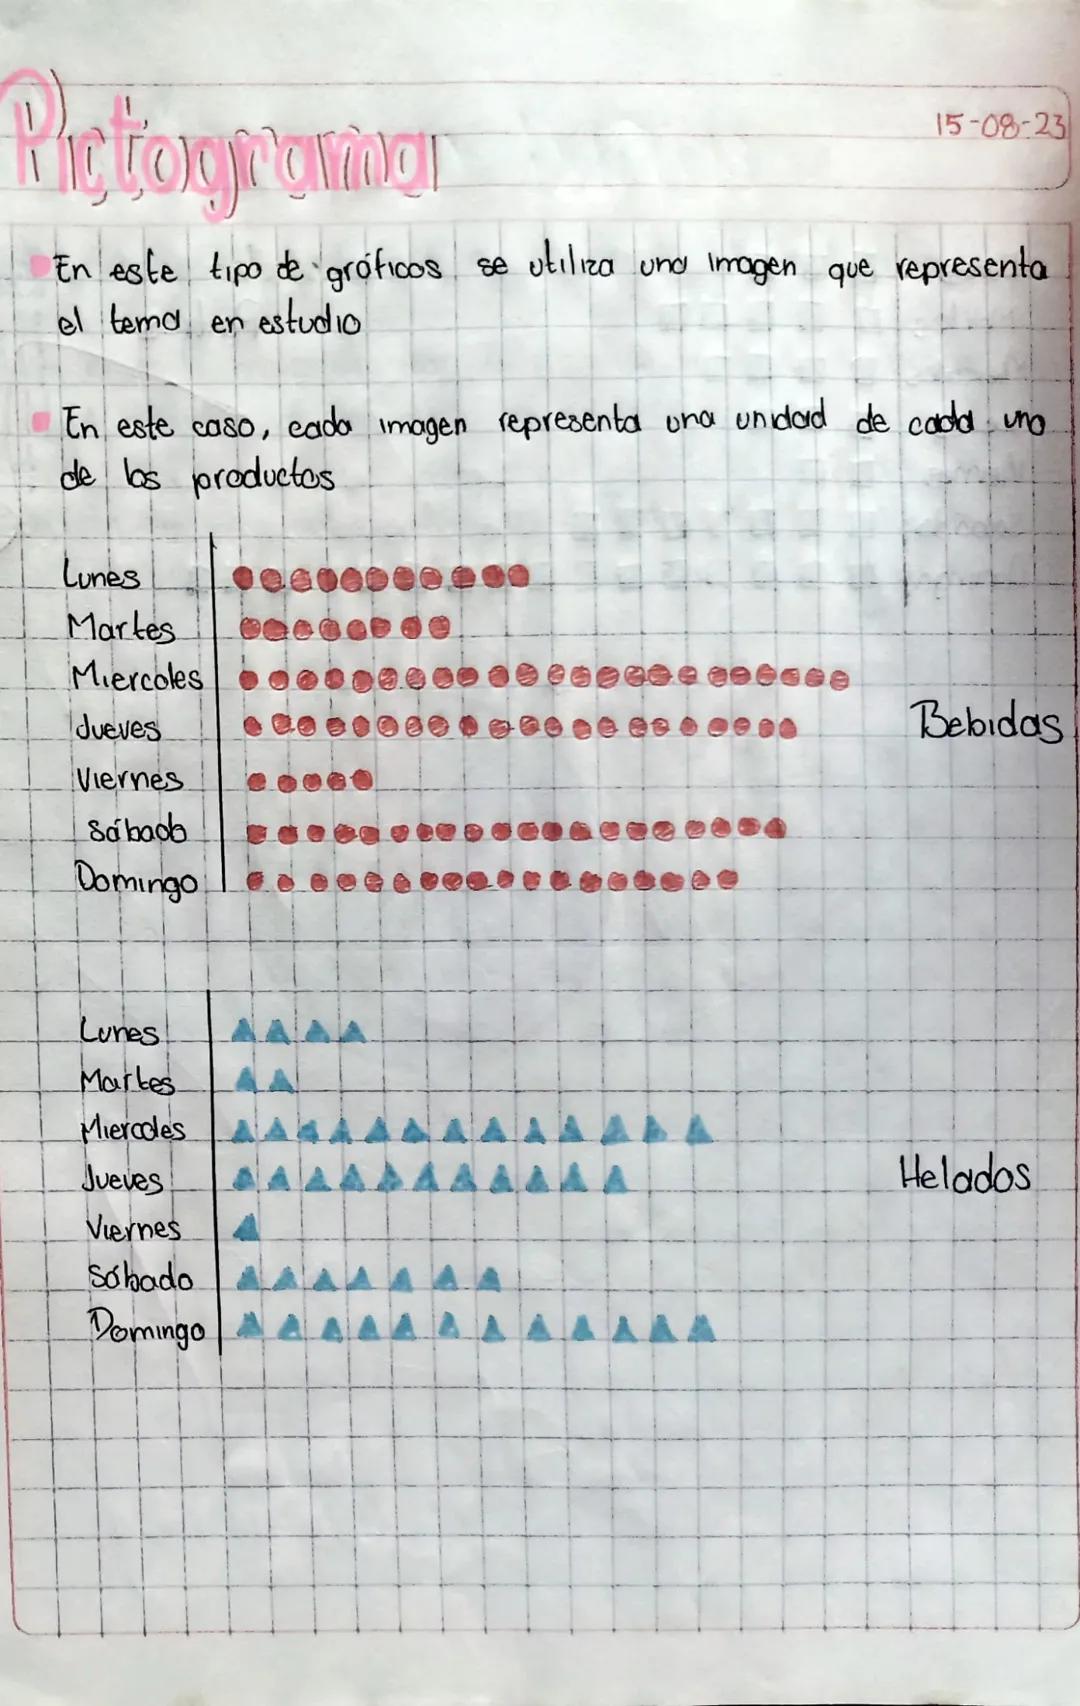 Pictograma
15-08-23
En este tipo de gráficos se utiliza una imagen que representa
el tema en estudio
En este caso, cada imagen representa una unidad de cada uno
de los productos
Lunes
Martes
Miercoles
Jueves
Bebidas
Viernes
Sábado
Domingo
Lunes
Martes
Miercoles
Jueves
Helados
Viernes
Sábado
Domingo